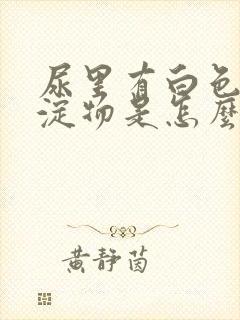 尿里有白色
淀物是怎麼
黃靜茵